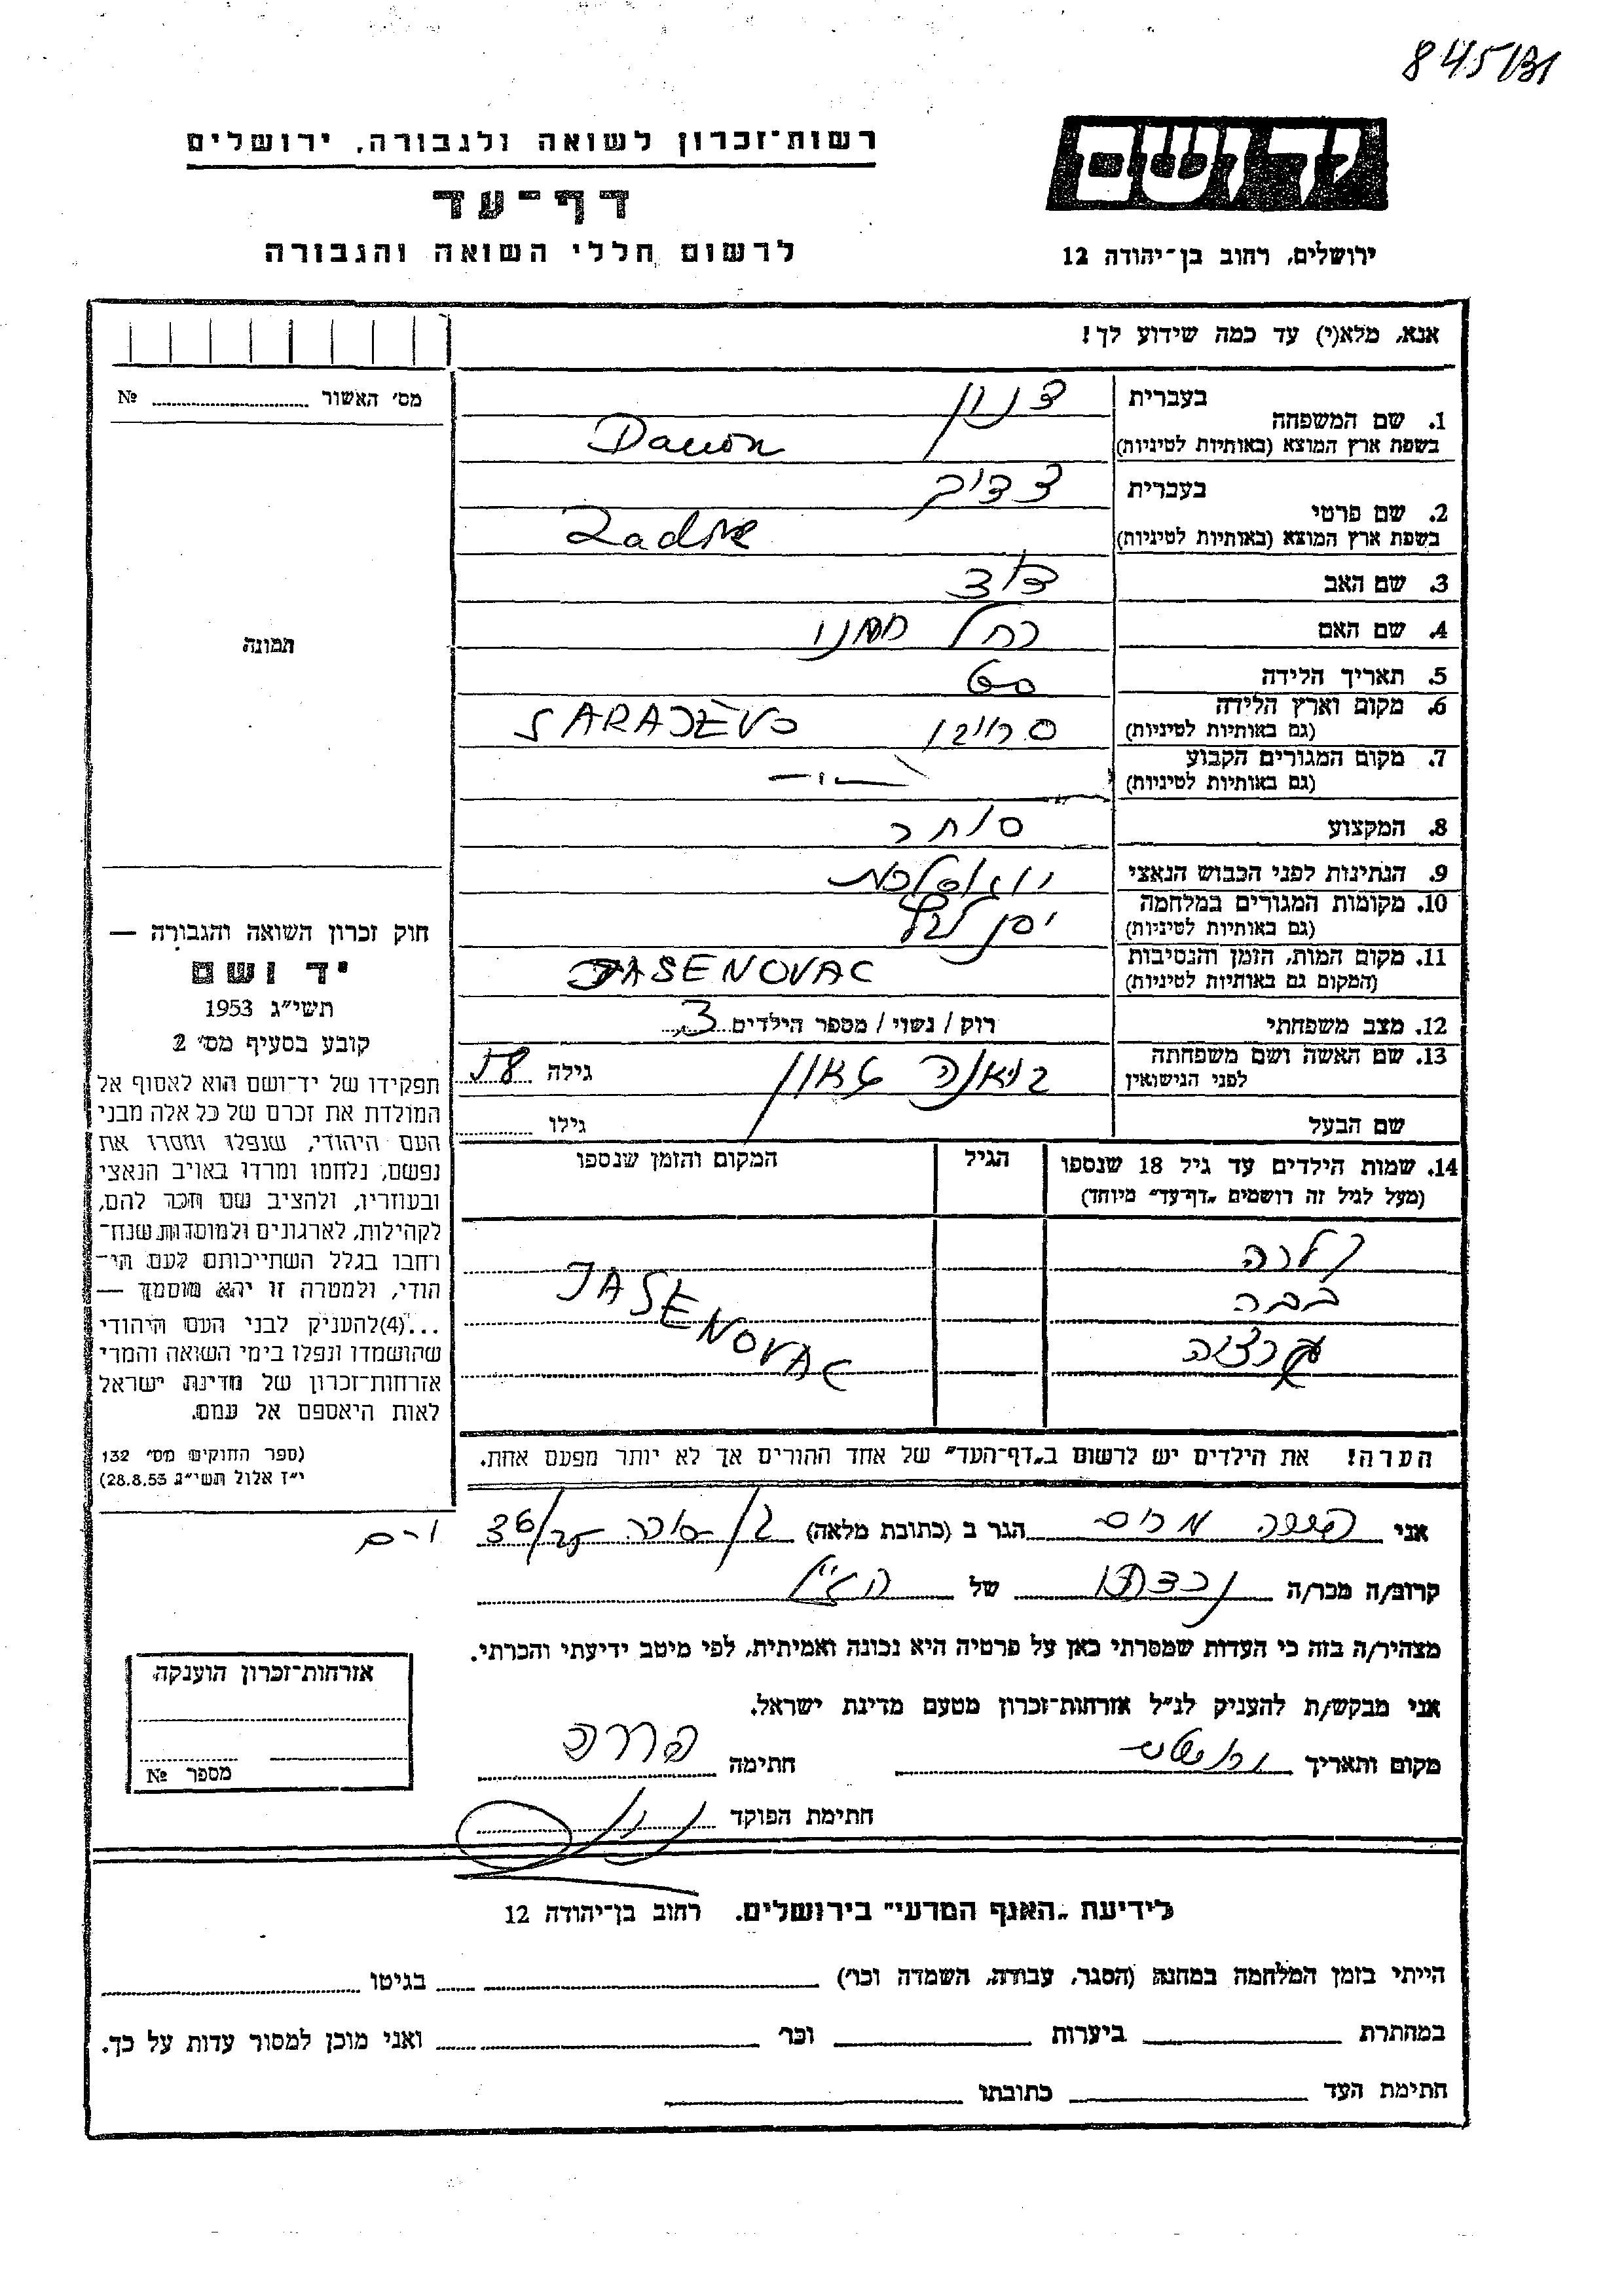 845/31
רשות־זכרון לשואה ולגבורה, ירושלים
דף־עד
לרשום חללי השואה והגבורה
יד ושם
ירושלים, רחוב בן־יהודה 12
אנא, מלא(י) עד כמה שידוע לך!
מס׳ האשור № 
תמונה
1. שם המשפחה
בעברית דנון
בשפת ארץ המוצא (באותיות לטיניות) Danon
2. שם פרטי
בעברית צדיק
בשפת ארץ המוצא (באותיות לטיניות) Zadik
3. שם האב דוד
4. שם האם רחל
5. תאריך הלידה 60
6. מקום וארץ הלידה
(גם באותיות לטיניות) סרייבו SARAJEVO
7. מקום המגורים הקבוע
(גם באותיות לטיניות) —„—
8. המקצוע סוחר
9. הנתינות לפני הכבוש הנאצי
10. מקומות המגורים במלחמה
(גם באותיות לטיניות)
11. מקום המות, הזמן והנסיבות
(המקום גם באותיות לטיניות) JASENOVAC
12. מצב משפחתי רוק / נשוי / מספר הילדים 3
13. שם האשה ושם משפחתה
לפני הנישואין גילה 58
שם הבעל גילו
14. שמות הילדים עד גיל 18 שנספו
(מעל לגיל זה רושמים „דף־עד״ מיוחד)
הגיל
המקום והזמן שנספו
קלרה
JASENOVAC
הערה! את הילדים יש לרשום ב„דף־העד״ של אחד ההורים אך לא יותר מפעם אחת.
חוק זכרון השואה והגבורה —
יד ושם
תשי״ג 1953
קובע בסעיף מס׳ 2
תפקידו של יד־ושם הוא לאסוף אל
המולדת את זכרם של כל אלה מבני
העם היהודי, שנפלו ומסרו את
נפשם, נלחמו ומרדו באויב הנאצי
ובעוזריו, ולהציב שם וזכר להם,
לקהילות, לארגונים ולמוסדות שנח־
רחבו בגלל השתייכותם לעם הי־
הודי, ולמטרה זו יהא מוסמך —
...״(4)להעניק לבני העם היהודי
שהושמדו ונפלו בימי השואה והמרי
אזרחות־זכרון של מדינת ישראל
לאות היאספם אל עמם.
(ספר החוקים מס׳ 132
י״ז אלול תשי״ג 28.8.53)
אני מרים הגר ב (כתובת מלאה) 36/ י-ם
קרוב/ה מכר/ה נכדתו של הנ״ל
מצהיר/ה בזה כי העדות שמסרתי כאן על פרטיה היא נכונה ואמיתית, לפי מיטב ידיעתי והכרתי.
אני מבקש/ת להעניק לנ״ל אזרחות־זכרון מטעם מדינת ישראל.
מקום ותאריך חתימה
חתימת הפוקד
אזרחות־זכרון הוענקה
מספר №
לידיעת „האגף המדעי״ בירושלים. רחוב בן־יהודה 12
הייתי בזמן המלחמה במחנה (הסגר, עבודה, השמדה וכו׳) בגיטו
במחתרת ביערות וכו׳ ואני מוכן למסור עדות על כך.
חתימת העד כתובתו